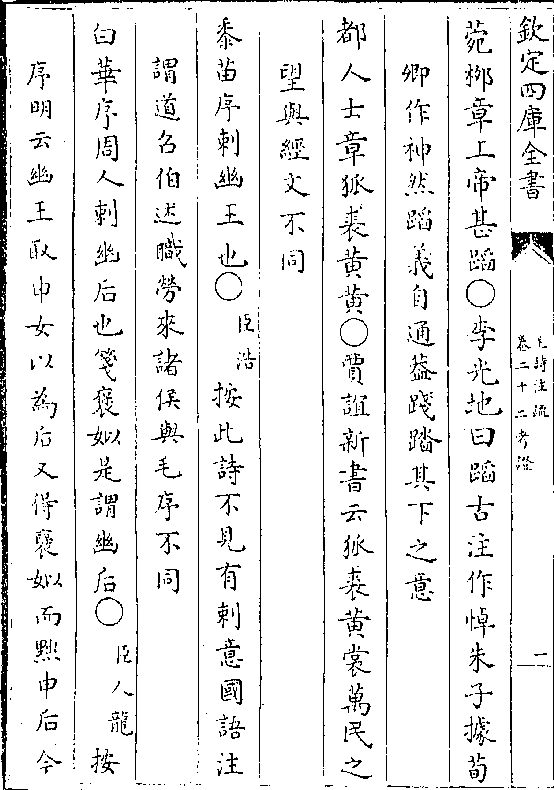 欽定四庫全書
毛詩注疏
卷二十二考證
二
菀栁章上帝甚蹈○李光地曰蹈古注作悼朱子據荀
卿作神然蹈義自通葢踐踏其下之意
都人士章狐裘黄黄○賈誼新書云狐裘黄裳萬民之
望與經文不同
黍苗序刺幽王也○臣浩按此詩不見有刺意國語注
謂道召伯述職勞來諸侯與毛序不同
白華序周人刺幽后也箋褒姒是謂幽后○臣人龍按
序明云幽王取申女以為后又得褒姒而黜申后今